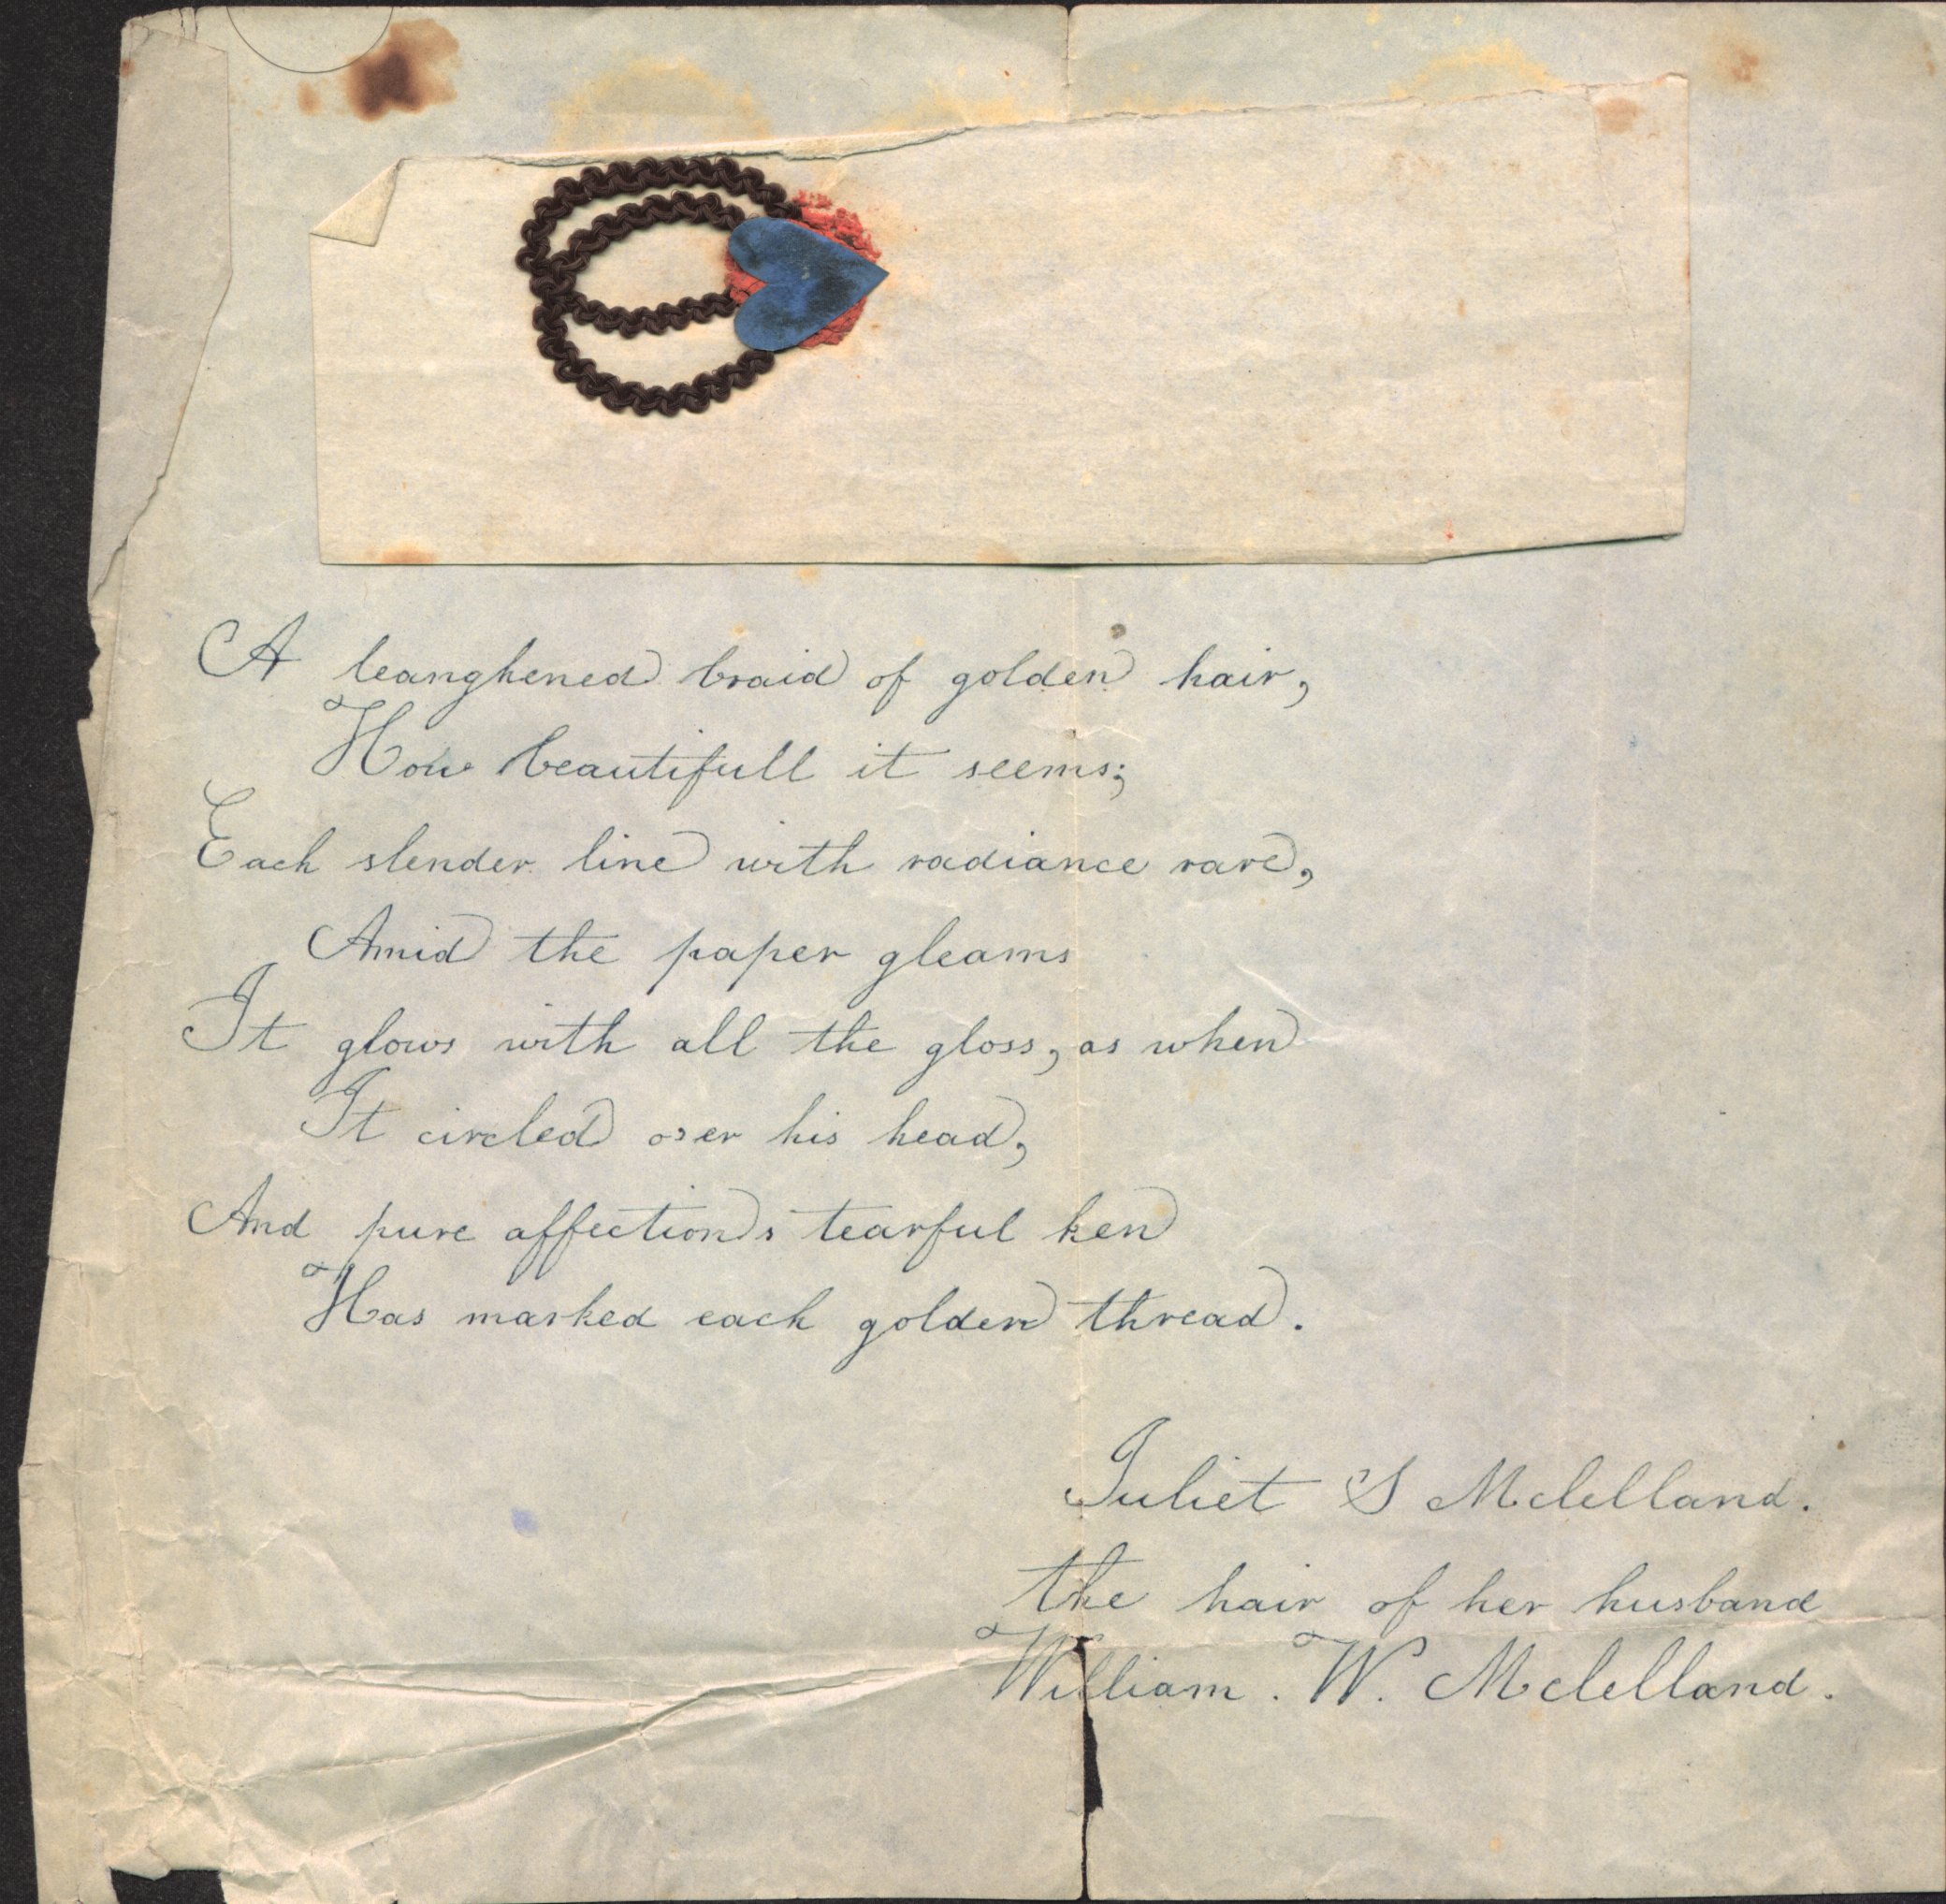 A leanghened braid of golden hair,
How beautifull it seems;
Each slender line with radiance rare,
Amid the paper gleams
It glows with all the gloss, as when
It circled oer his head,
And pure affections tearful ken
Has marked each golden thread.
Juliet S Mclelland.
the hair of her husband
William. W. Mclelland.